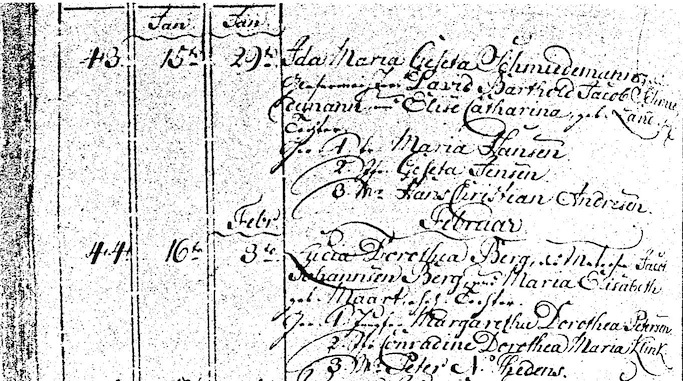 Jan Jan
43 15t 29t Ida Maria Geseta Schmiedemann
David Barthold Jacob
Elise Catharina, geb.
Tochter
Gev. 1 Maria Hansen
2 Geseta Jensen
3 Hans Christian Andresen
Febr Februar
44 16t 3te Lucia Dorothea Berg, Jacob
Johannsen Berg Maria Elisabeth
geb. Maart, ehel. Tochter.
Gev. 1 Jungfr Margaretha Dorothea Petersen
2 Conradine Dorothea Maria Klink
3 Peter N. Thedens.